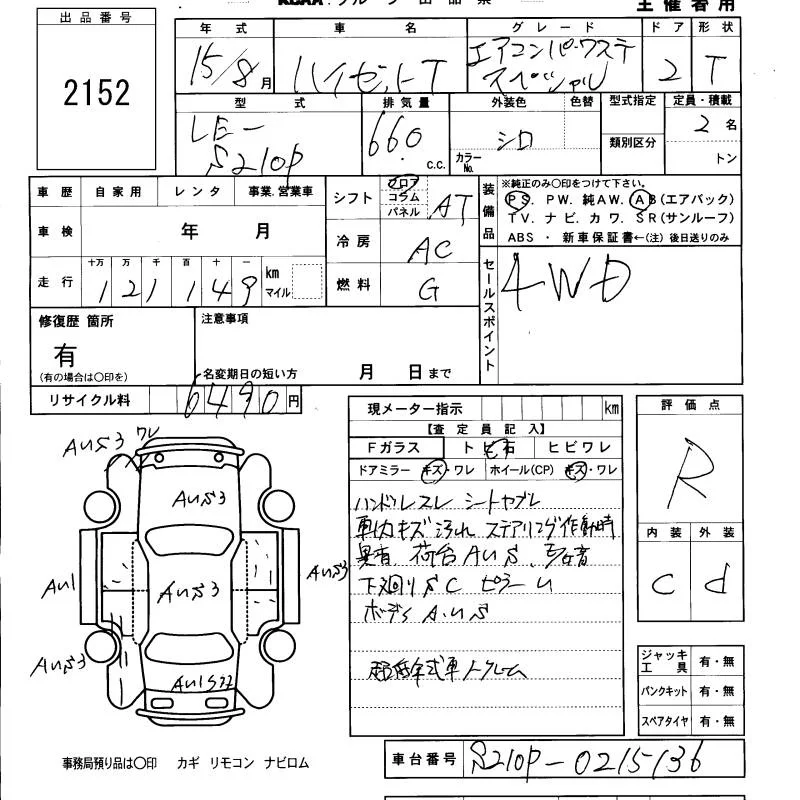 出品番号
2152
主催者用
年式 車名 グレード ドア 形状
15/8月 ハイゼットT エアコンパワステ
スペシャル 2 T
型式 排気量 外装色 色替 型式指定 定員・積載
LE-
S210P 660 c.c. シロ カラーNo. 類別区分 2名
トン
車歴 自家用 レンタ 事業.営業車
車検 年 月
走行 十万 万 千 百 十 一
121149 km マイル
シフト フロア コラム パネル AT
冷房 AC
燃料 G
装備品
※純正のみ〇印をつけて下さい。
PS. PW. 純AW. AB(エアバック)
TV. ナビ. カワ. SR(サンルーフ)
ABS ・ 新車保証書←(注) 後日送りのみ
セールスポイント
4WD
修復歴 箇所
有
(有の場合は〇印を)
注意事項
名変期日の短い方 月 日まで
リサイクル料 6490円
現メーター指示 km
【査定員記入】
Fガラス トビ石 ヒビワレ
ドアミラー キズ・ワレ ホイール(CP) キズ・ワレ
ハンドルスレ シートヤブレ
キズ 汚れ ステアリング作動時
異音 荷台AUS
下廻りSC ピラーU
ボディAUS
低年式車
評価点
R
内装 外装
C d
ジャッキ工具 有・無
パンクキット 有・無
スペアタイヤ 有・無
AUS3 ワレ
AUS3
AU1
AUS3
AUS3
AUS3
事務局預り品は〇印 カギ リモコン ナビロム
車台番号 S210P-0215136